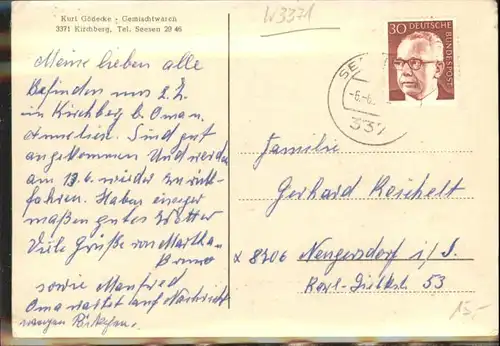 Kurt Gödecke - Gemischtwaren
3371 Kirchberg, Tel. Seesen 28 46
W3371
30 DEUTSCHE BUNDESPOST
SE
-6.-6.
337
Meine lieben alle
Befinden uns z.Z.
in Kirchberg b. Oma u.
Anneliese. Sind gut
angekommen Und werden
am 13.6. wieder zurück-
fahren. Haben einiger
maßen gutes Wetter
Viele Grüße von Martha
Bruno
sowie Manfred
Oma wartet auf Nachricht
wegen
Familie
Gerhard Reichelt
x 8706 Neugersdorf i/S.
Karl-Liebkn. 53
15,-